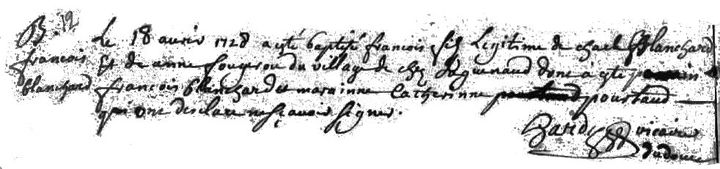 B. 19
françois
blanchard
Le 18 avrir 1728 a esté baptisé françois fils Legitime de charl Blanchard
et de anne fougerou du village de chez seguenaud dont a esté parrain
françois blanchard et marainne Catherinne poustaud
qui ont desclare ne sçavoir signer.
vicaire